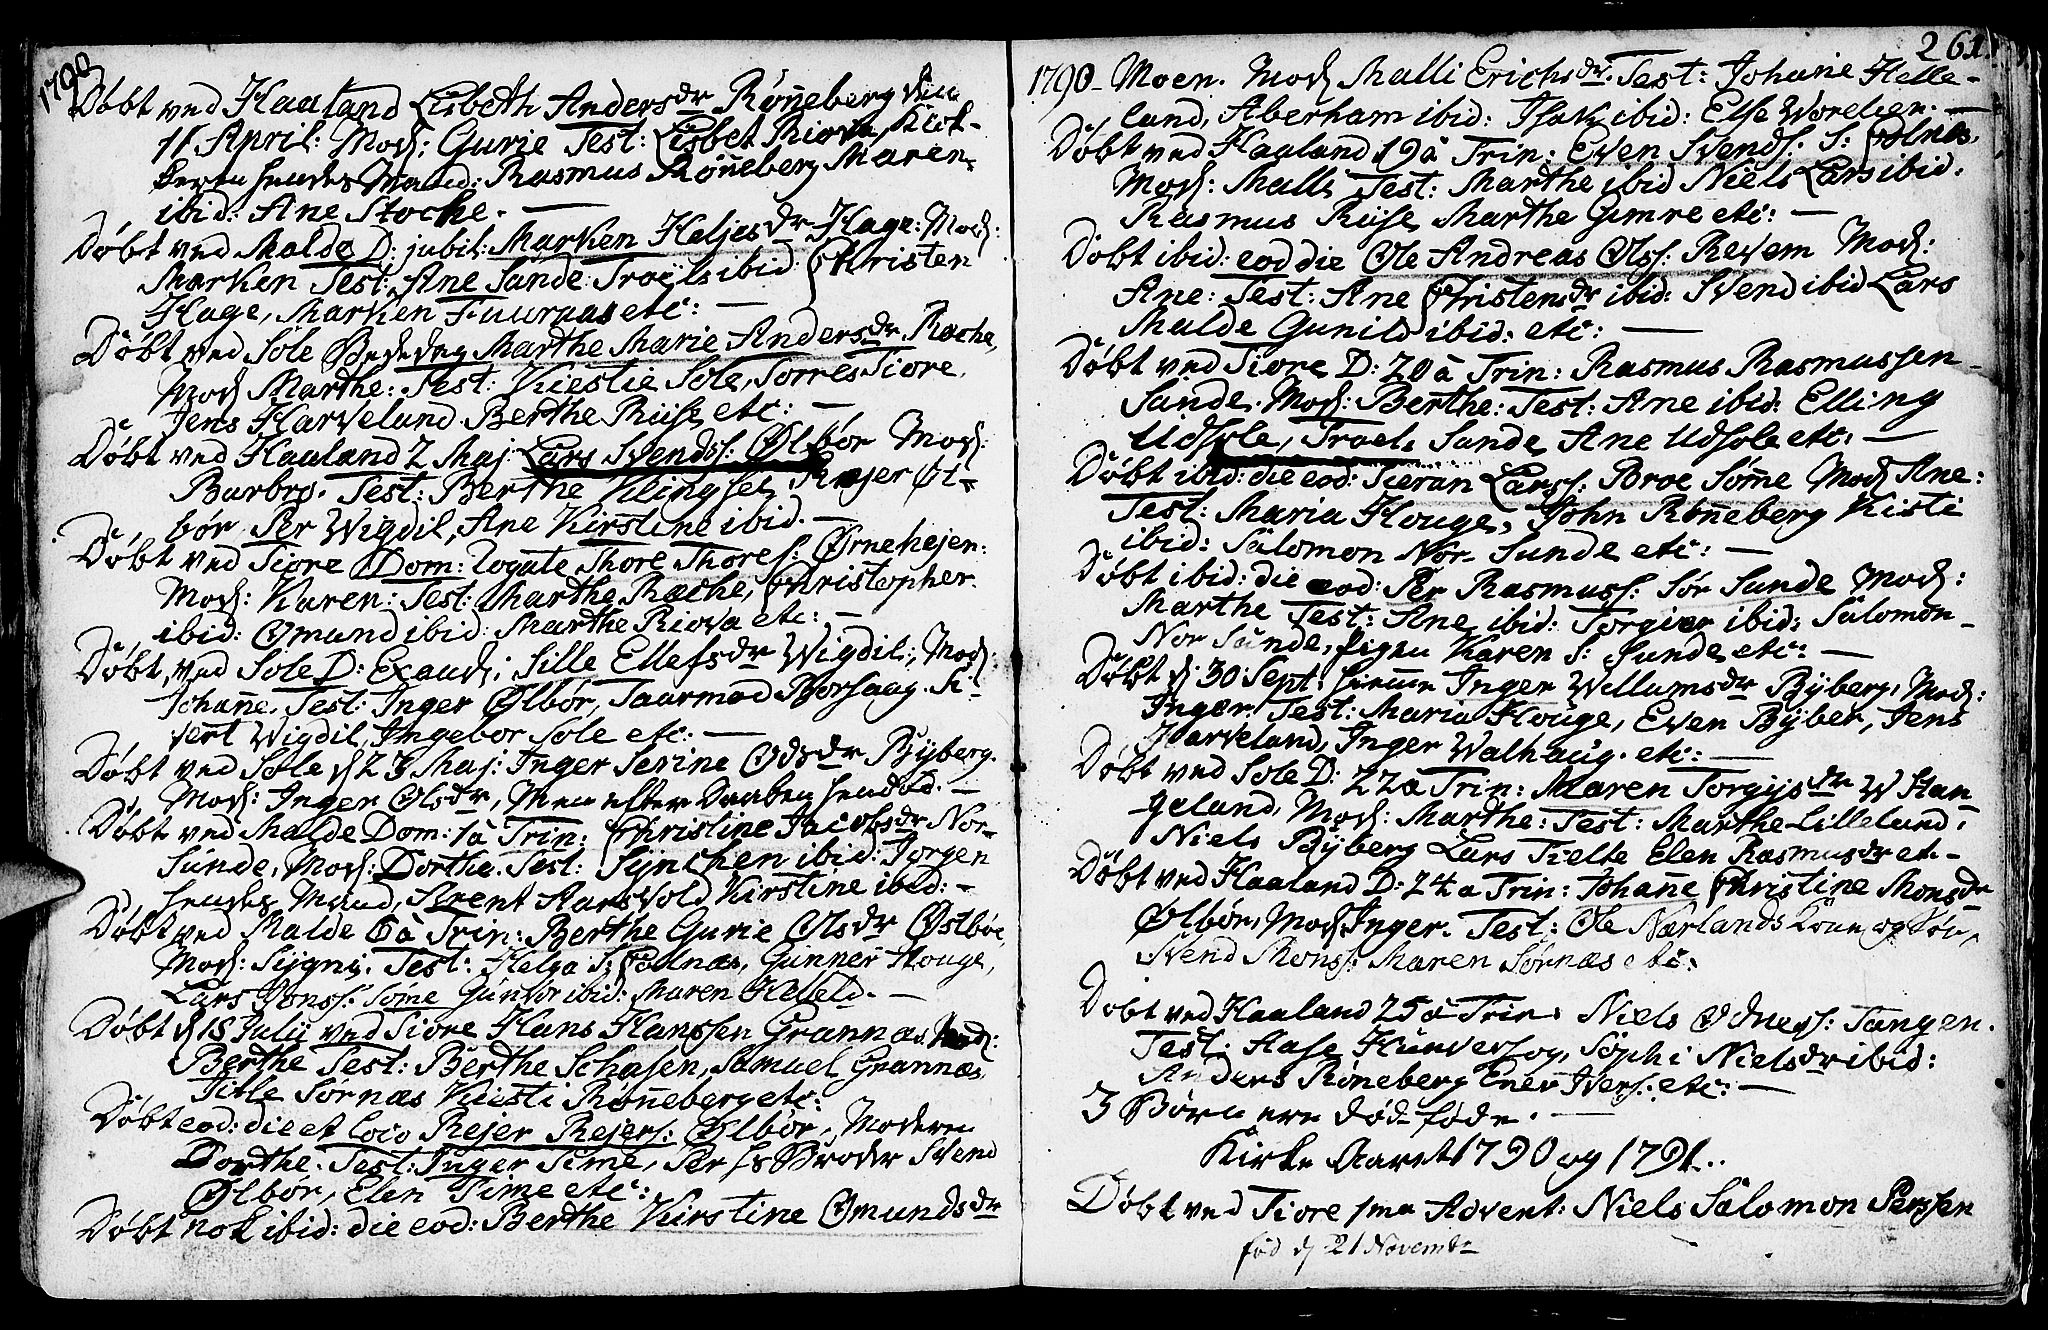 1790
Døbt ved Haaland Lisbeth Andersdr Røñeberg den
11 April: Mod: Gurie Test: Lisbet Riova,
hendes Mand: Rasmus Røñeberg Maren
ibid: Ane Stocke. —
Døbt ved Malde D: jubil: Marken Heljesdr Hage: Mod:
Marken Test: Ane Sunde Troels ibid: Christen
Hage, Marken Fuuraas etc: —
Døbt ved Sole Bededag Marthe Marie Andersdr Ræche,
Mod Marthe: Test: Kiestie Sole, Torres Tiore,
Jens Harvelund Berthe Riise etc: —
Døbt ved Haaland 2 Maj: Lars Svends: Ølbør Mod:
Barbro. Test: Berthe Klingset Rejer Øl-
bør Per Wigdil, Ane Kirstine ibid. —
Døbt ved Tiore Dom: Rogate Thore Thores: Ørnehejen:
Mod: Karen: Test: Marthe Ræche, Christopher
ibid: Omund ibid: Marthe Riova etc: —
Døbt ved Sole D: Exaudi: Sille Ellefsdr Wigdil:, Mod:
Johañe, Test: Inger Ølbør, Taarmod Si-
vert Wigdil, Ingebor Sole etc: —
Døbt ved Sole d 23 Maj: Inger Serine Odsdr Byberg.
Mod: Inger Olsdr, Men efter Daaben hendød. —
Døbt ved Malde Dom: 1 a Trin: Christine Jacobsdr Nor-
Sunde, Mod: Dorthe. Test: Synchen ibid: Jørgen
hendes Mand, Arent Aarsvold Kirstine ibid: —
Døbt ved Malde 6 a Trin: Berthe Gurie Olsdr Østbøe
Mod: Sygni. Test: Helga S: Colnæs, Gunner Houge,
Lars Jonss: Søme Gunvor ibid: Maren —
Døbt d 18 Julii ved Tiore Hans Hanssen Grannæs Mod:
Berthe Test: Berthe Schasen, Samuel Grannæs
Title Sørnæs Kiesti Røñeberg etc:
Døbt eod: die et loco Rejer Rejers: Ølbør, Moderen
Dorthe. Test: Inger Sime, Per Broder Svend
Ølbør, Elen Time etc:
Døbt nok ibid: die eod: Berthe Kirstine Omundsdr
261
1790 – Moen. Mod Malli Erichsdr. Test: Johane Helle-
land, Aberham ibid: Isak ibid: Else —
Døbt ved Haaland 19 a Trin: Even Svends: S: Colnæs,
Mod: Malli Test: Marthe ibid Niels Lars ibid:
Rasmus Riise Marthe Gimre etc: —
Døbt ibid: eod die Ole Andreas Olss: Revem Mod:
Ane: Test: Ane Christensdr ibid: Svend ibid Lars
Malde Gunild ibid: etc: —
Døbt ved Tiore D: 20 a Trin: Rasmus Rasmussen
Sunde. Mod: Berthe: Test: Ane ibid: Elling
Udsole, Troels Sunde, Ane Udsole etc: —
Døbt ibid: die eod: Tieran Larss: Broe Søme Mod Ane:
Test: Maria Houge, John Røñeberg Kisti
ibid: Salomon Nor-Sunde etc: —
Døbt ibid: die eod: Per Rasmuss: Sør Sunde Mod:
Marthe Test: Ane ibid: Torgier ibid: Salomon
Nor Sunde, Pigen Karen S: Sunde etc: —
Døbt d: 30 Sept: hieme Inger Willumsdr Byberg. Mod:
Inger Test: Maria Houge, Even Byber, Jens
Harveland, Inger Walhaug. etc: —
Døbt ved Sole D: 22 a Trin: Maren Torgysdr W Stan
geland, Mod: Marthe: Test: Marthe Lillelund,
Niels Byberg Lars Tielte Elen Rasmusdr etc –
Døbt ved Haaland D: 24 a Trin: Johañe Christine Monsdr
Ølbør, Mod Inger. Test: Ole Nærlands Kone og
Svend Monss: Maren Sørnæs etc:
Døbt ved Haaland 25 a Trin: Niels Odners: Tangen.
Test: Aase Sophi Nielsdr ibid:
Anders Røneberg Ener Ivers: etc: —
3 Børn ere død føde. —
Kirke Aaret 1790 og 1791..
Døbt ved Tiore 1ma Advent: Niels Salomon Perssen
fød d 21 Novembr